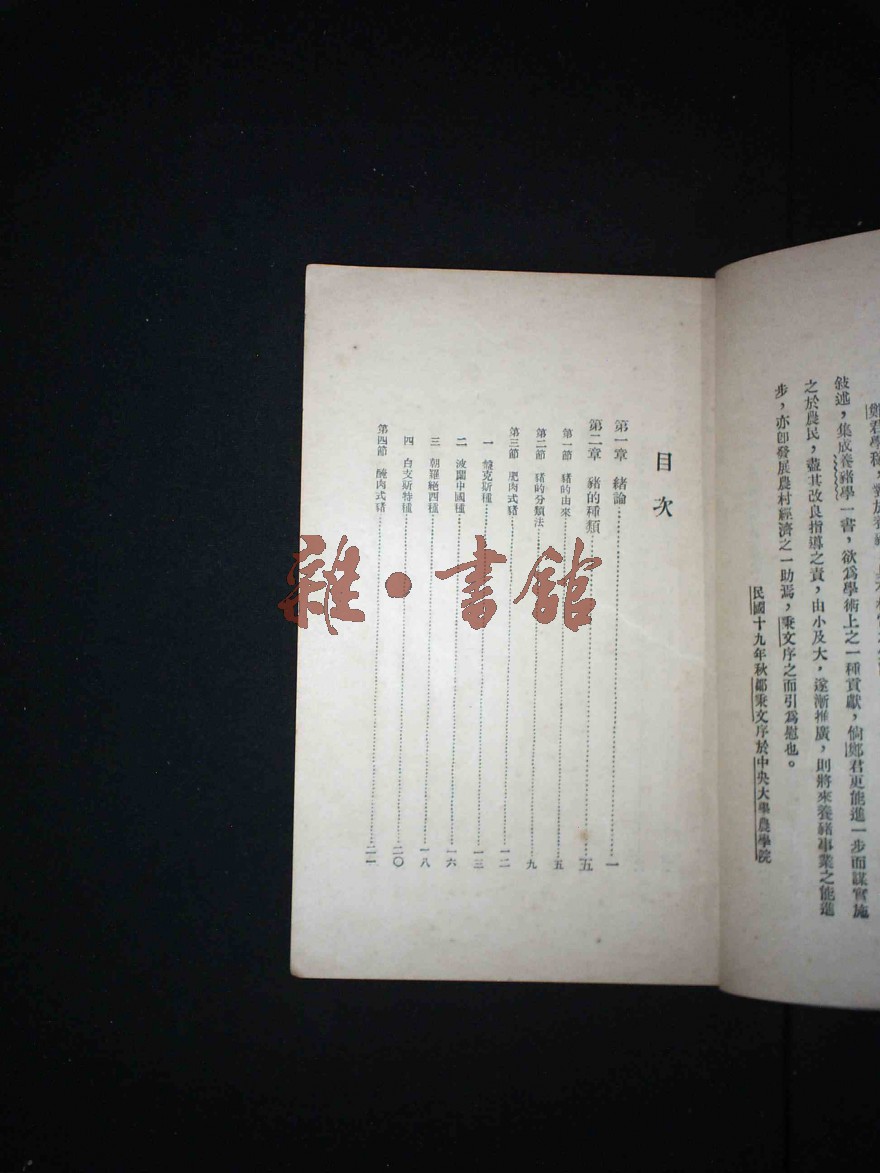 君學
敍述，集成養豬學一書，欲爲學術上之一種貢獻，倘鄭君更能進一步而謀實施
之於農民，盡其改良指導之責，由小及大，遂漸推廣，則將來養豬事業之能進
步，亦卽發展農村經濟之一助焉，秉文序之而引爲慰也。
民國十九年秋鄒秉文序於中央大學農學院
目次
第一章 緒論 一
第二章 豬的種類 五
第一節 豬的由來 五
第二節 豬的分類法 九
第三節 肥肉式豬 一二
一 盤克斯種 一三
二 波蘭中國種 一六
三 朝羅絕西種 一八
四 白支斯特種 二〇
第四節 醃肉式豬 二一
雜·書館